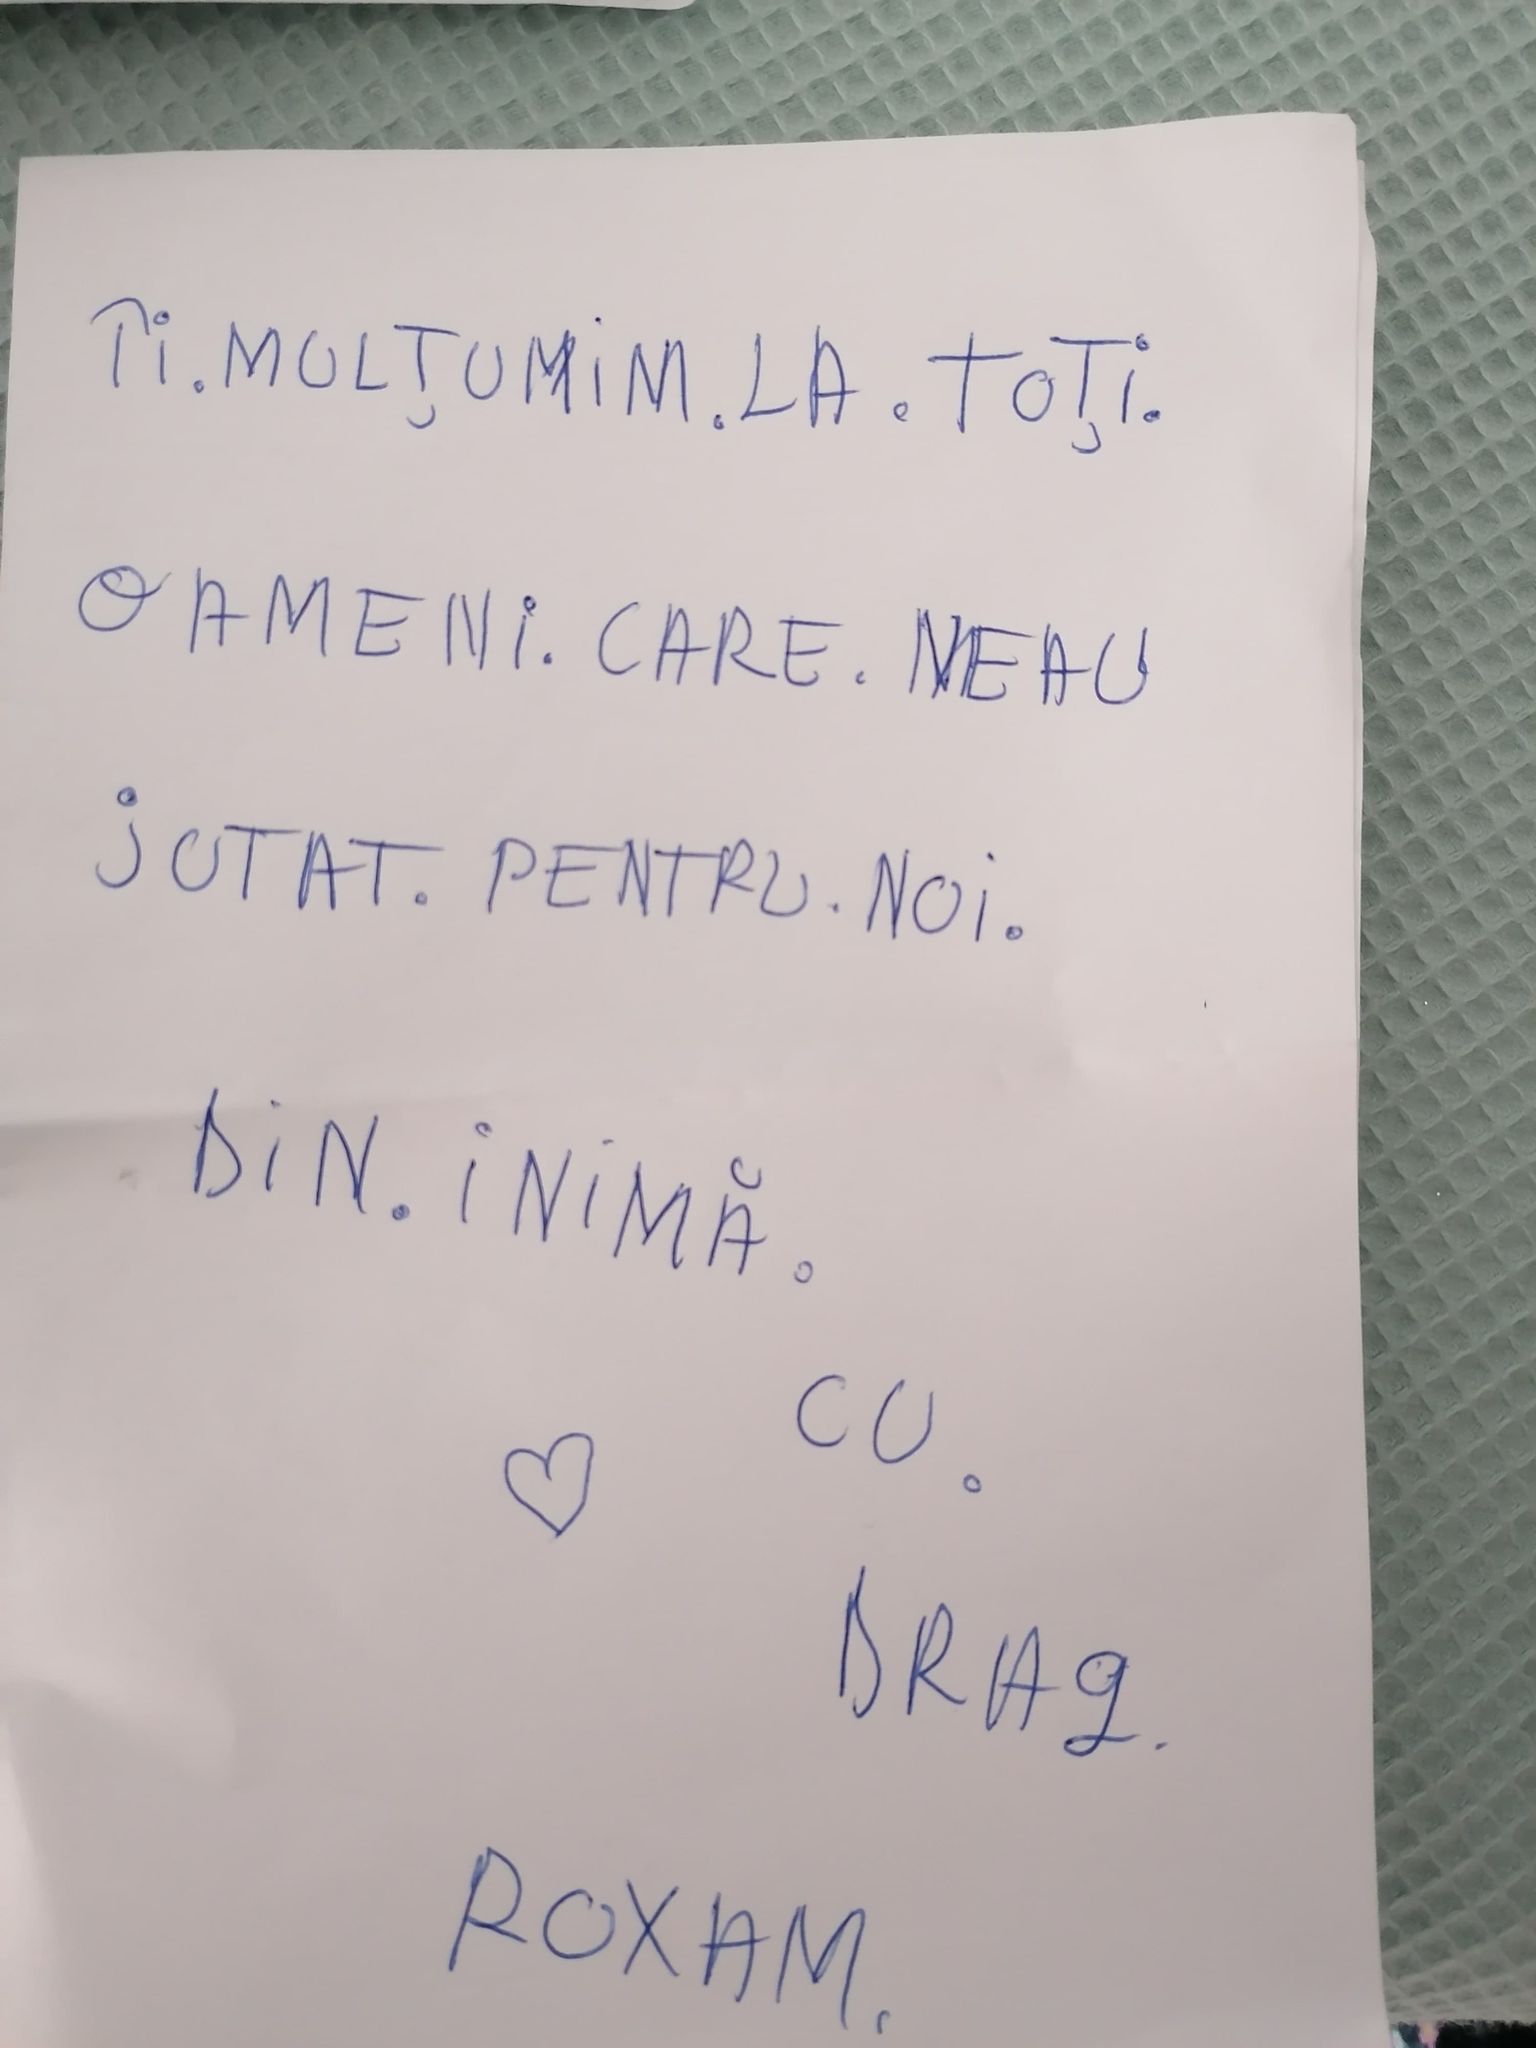 Ti.MULȚUMiM.LA.TOȚi.
OAMENi.CARE.NEAU
jUTAT.PENTRU.NOi.
DiN.iNiMĂ.
CU.
♡
DRAg.
ROXAM.